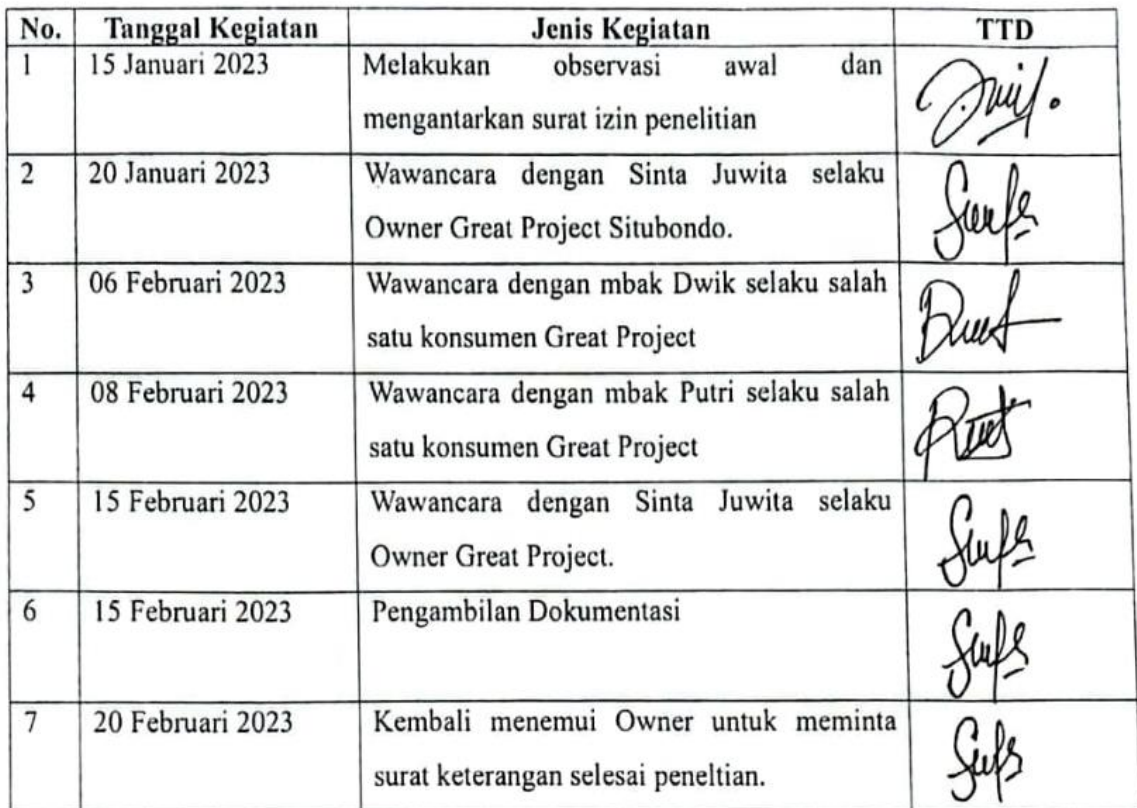 No. Tanggal Kegiatan Jenis Kegiatan TTD
1 15 Januari 2023 Melakukan observasi awal dan
mengantarkan surat izin penelitian
2 20 Januari 2023 Wawancara dengan Sinta Juwita selaku
Owner Great Project Situbondo.
3 06 Februari 2023 Wawancara dengan mbak Dwik selaku salah
satu konsumen Great Project
4 08 Februari 2023 Wawancara dengan mbak Putri selaku salah
satu konsumen Great Project
5 15 Februari 2023 Wawancara dengan Sinta Juwita selaku
Owner Great Project.
6 15 Februari 2023 Pengambilan Dokumentasi
7 20 Februari 2023 Kembali menemui Owner untuk meminta
surat keterangan selesai peneltian.